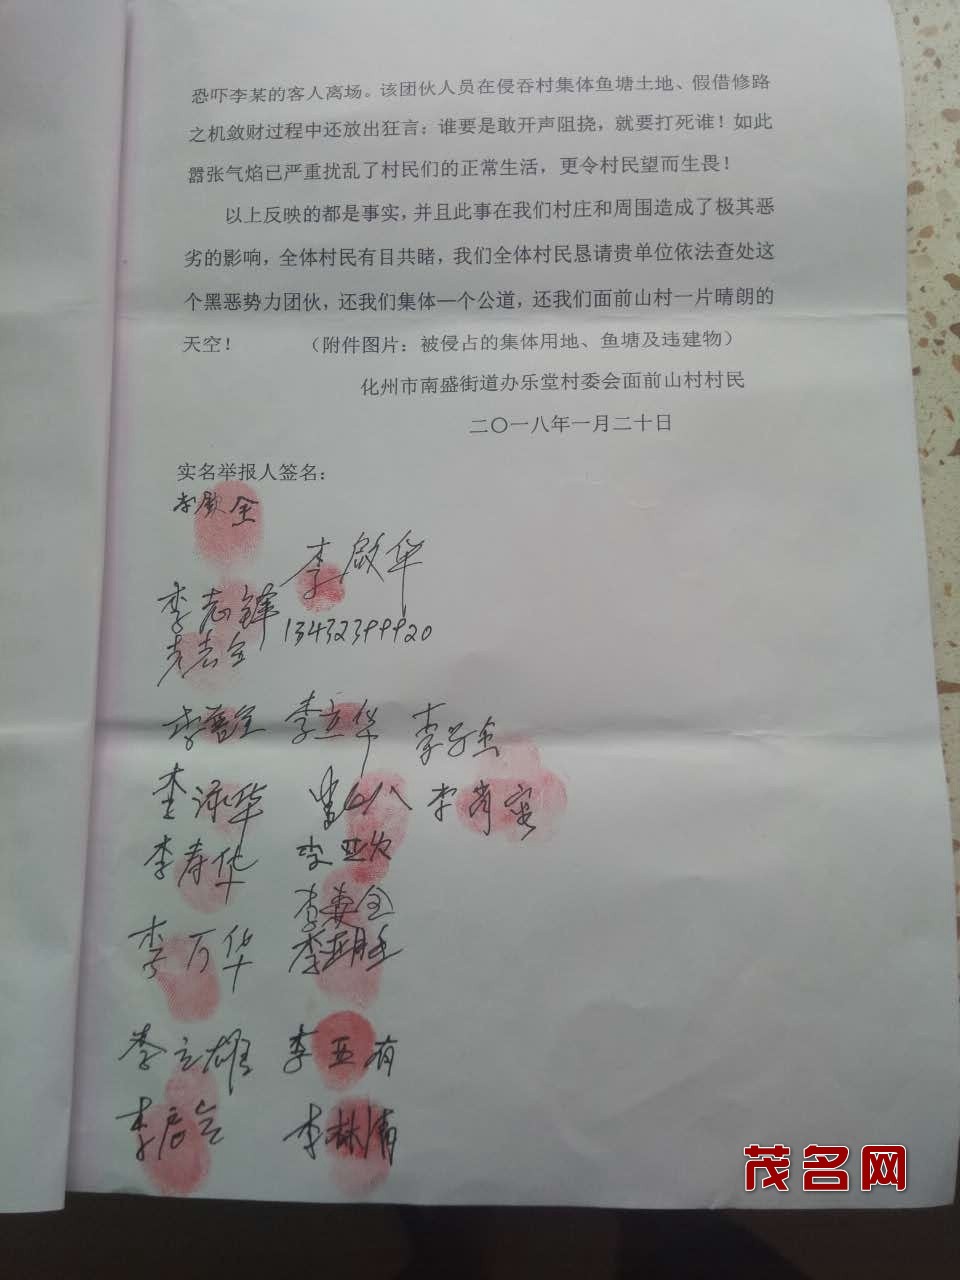 恐吓李某的客人离场。该团伙人员在侵吞村集体鱼塘土地、假借修路
之机敛财过程中还放出狂言：谁要是敢开声阻挠，就要打死谁！如此
嚣张气焰已严重扰乱了村民们的正常生活，更令村民望而生畏！
以上反映的都是事实，并且此事在我们村庄和周围造成了极其恶
劣的影响，全体村民有目共睹，我们全体村民恳请贵单位依法查处这
个黑恶势力团伙，还我们集体一个公道，还我们面前山村一片晴朗的
天空！ （附件图片：被侵占的集体用地、鱼塘及违建物）
化州市南盛街道办乐堂村委会面前山村村民
二〇一八年一月二十日
实名举报人签名：
李欽全
李啟华
李志锋
13432399920
李立华
李寿华
李亚次
李万华
李立雄 李亚有
李林清
茂名网